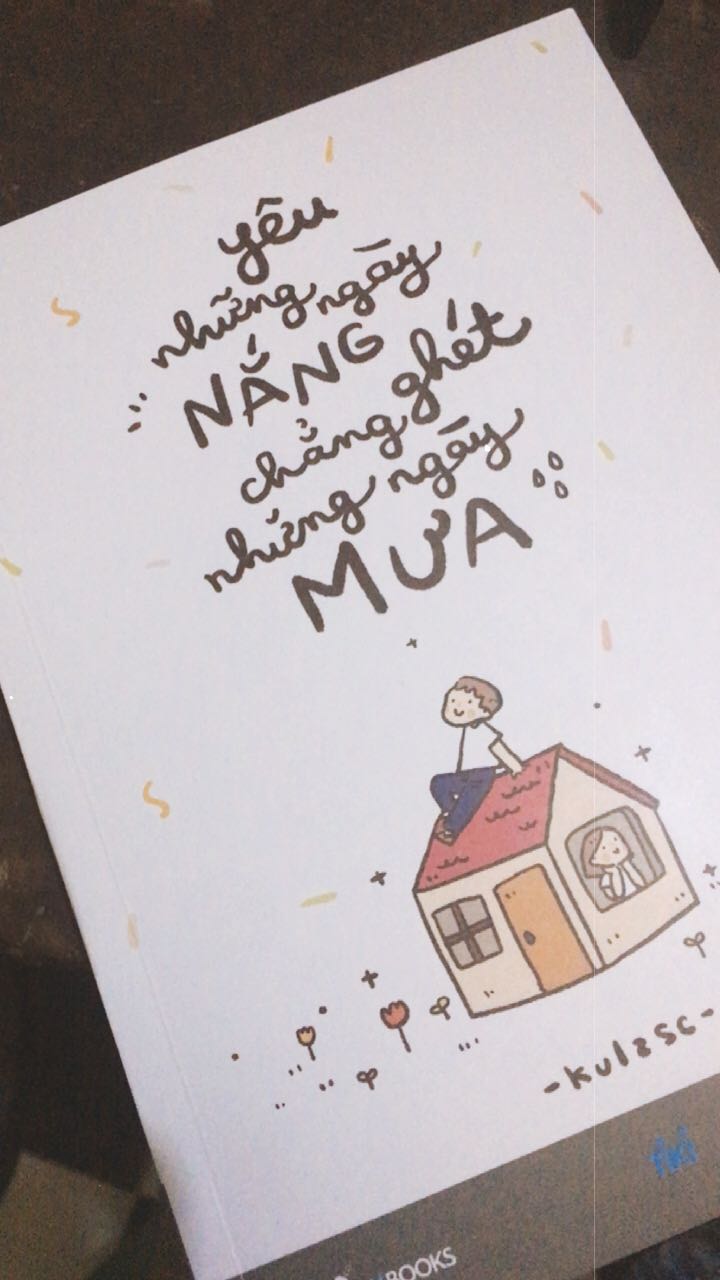 yêu
những ngày
NẮNG
chẳng ghét
những ngày
MƯA
-kulzsc-
BOOKS